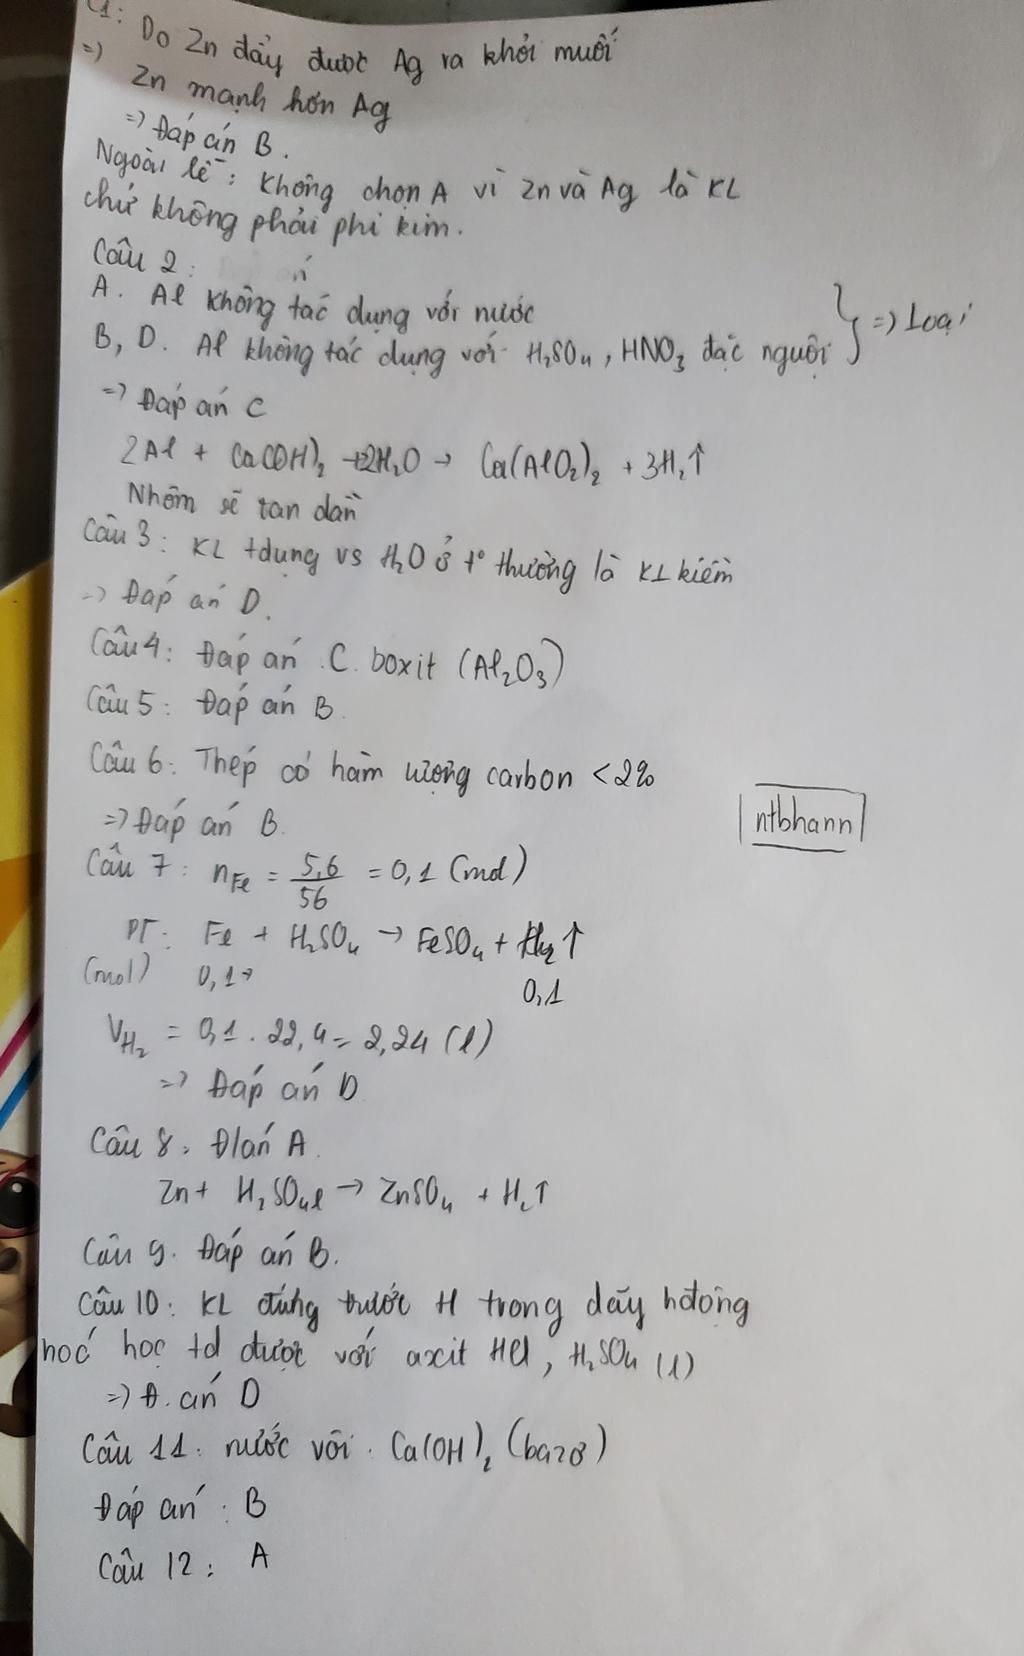 C1: Do Zn đẩy được Ag ra khỏi muối
=> Zn mạnh hơn Ag
=> Đáp án B.
Ngoài lề: Không chọn A vì Zn và Ag là KL
chứ không phải phi kim.
Câu 2:
A. Al không tác dụng với nước
B, D. Al không tác dụng với H₂SO₄, HNO₃ đặc nguội } => Loại
=> Đáp án C
2Al + Ca(OH)₂ + 2H₂O → Ca(AlO₂)₂ + 3H₂↑
Nhôm sẽ tan dần
Câu 3: KL tdụng vs H₂O ở t° thường là KL kiềm
=> Đáp án D.
Câu 4: Đáp án C. boxit (Al₂O₃)
Câu 5: Đáp án B.
Câu 6: Thép có hàm lượng carbon <2%
=> Đáp án B.
ntbhann
Câu 7: nFe = 5,6/56 = 0,1 (mol)
PT: Fe + H₂SO₄ → FeSO₄ + H₂↑
(mol) 0,1→ 0,1
VH₂ = 0,1 . 22,4 = 2,24 (l)
=> Đáp án D
Câu 8: Đ/án A.
Zn + H₂SO₄l → ZnSO₄ + H₂↑
Câu 9. Đáp án B.
Câu 10: KL đứng trước H trong dãy hđộng
hoá học td được với axit HCl, H₂SO₄ (l)
=> Đ. án D
Câu 11: nước vôi: Ca(OH)₂ (bazơ)
Đáp án: B
Câu 12: A